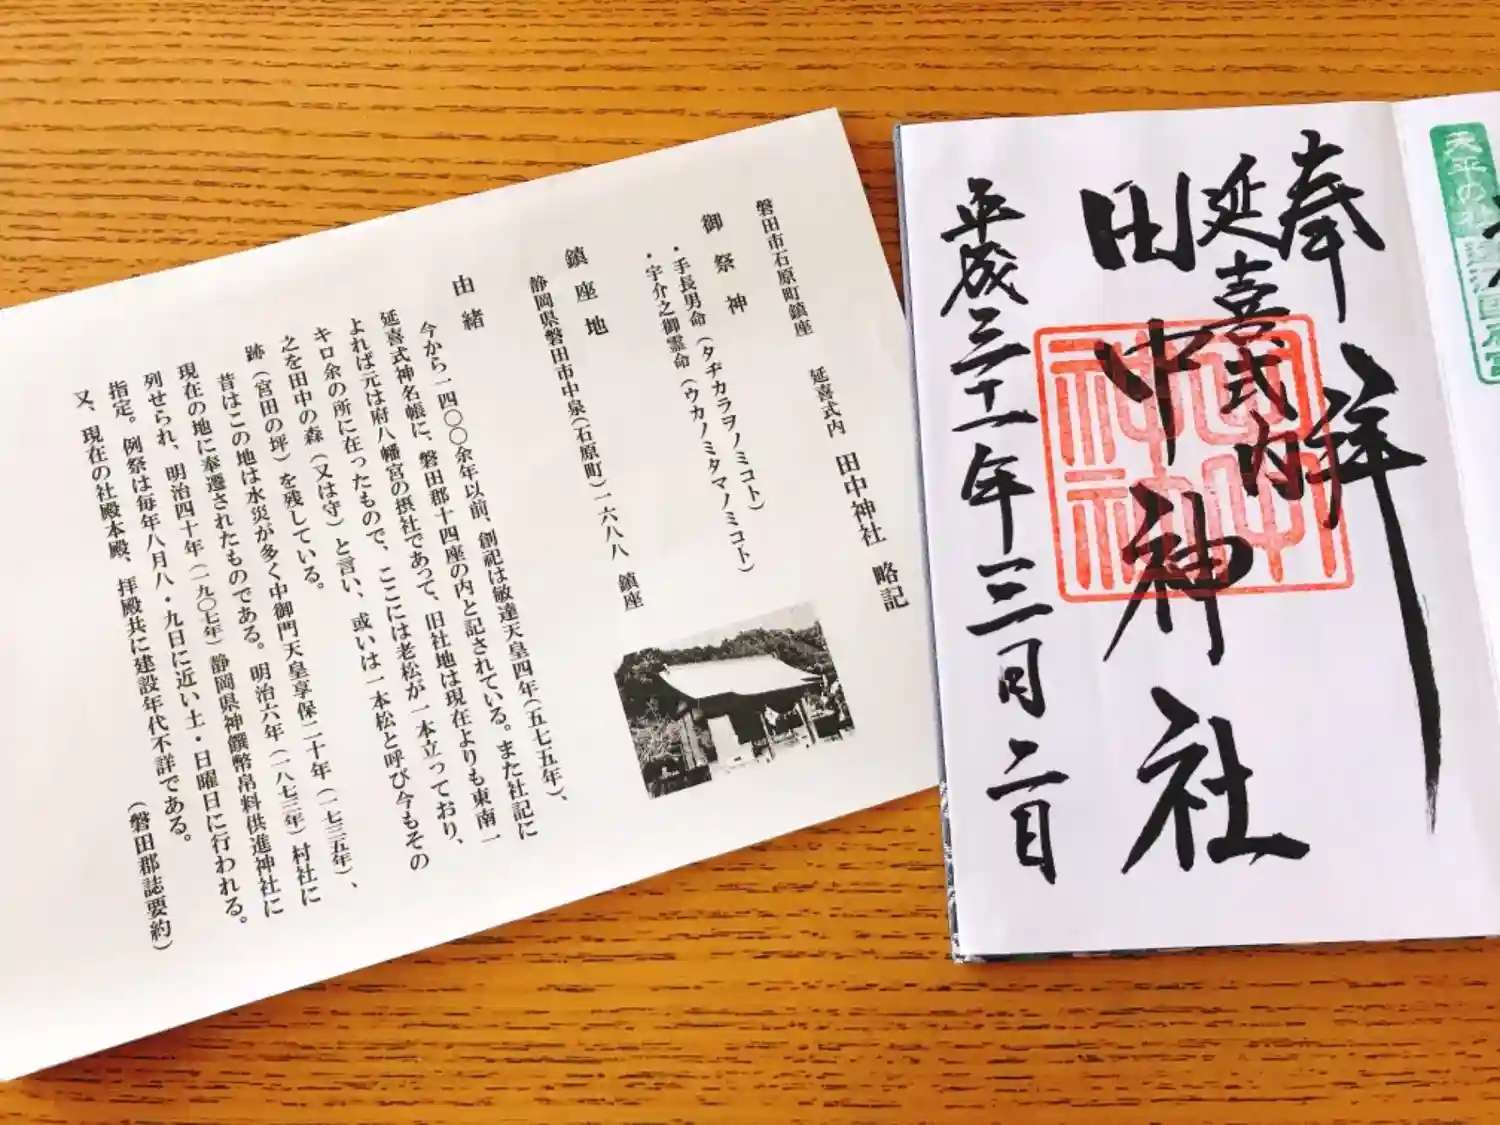 磐田市石原町鎮座　延喜式内　田中神社　略記
御祭神
・手長男命（タヂカラヲノミコト）
・宇介之御霊命（ウカノミタマノミコト）
鎮座地
静岡県磐田市中泉（石原町）一六八八　鎮座
由緒
今から一四〇〇余年以前、創祀は敏達天皇四年（五七五年）、
延喜式神名帳に、磐田郡十四座の内と記されている。また社記に
よれば元は府八幡宮の摂社であって、旧社地は現在よりも東南一
キロ余の所に在ったもので、ここには老松が一本立っており、
之を田中の森（又は守）と言い、或いは一本松と呼び今もその
跡（宮田の坪）を残している。
昔はこの地は水災が多く中御門天皇享保二十年（一七三五年）、
現在の地に奉遷されたものである。明治六年（一八七三年）村社に
列せられ、明治四十年（一九〇七年）静岡県神饌幣帛料供進神社に
指定。例祭は毎年八月八・九日に近い土・日曜日に行われる。
又、現在の社殿本殿、拝殿共に建設年代不詳である。
（磐田郡誌要約）
奉拝
延喜式内
田中神社
平成三十一年三月二日
田中神社
天平の